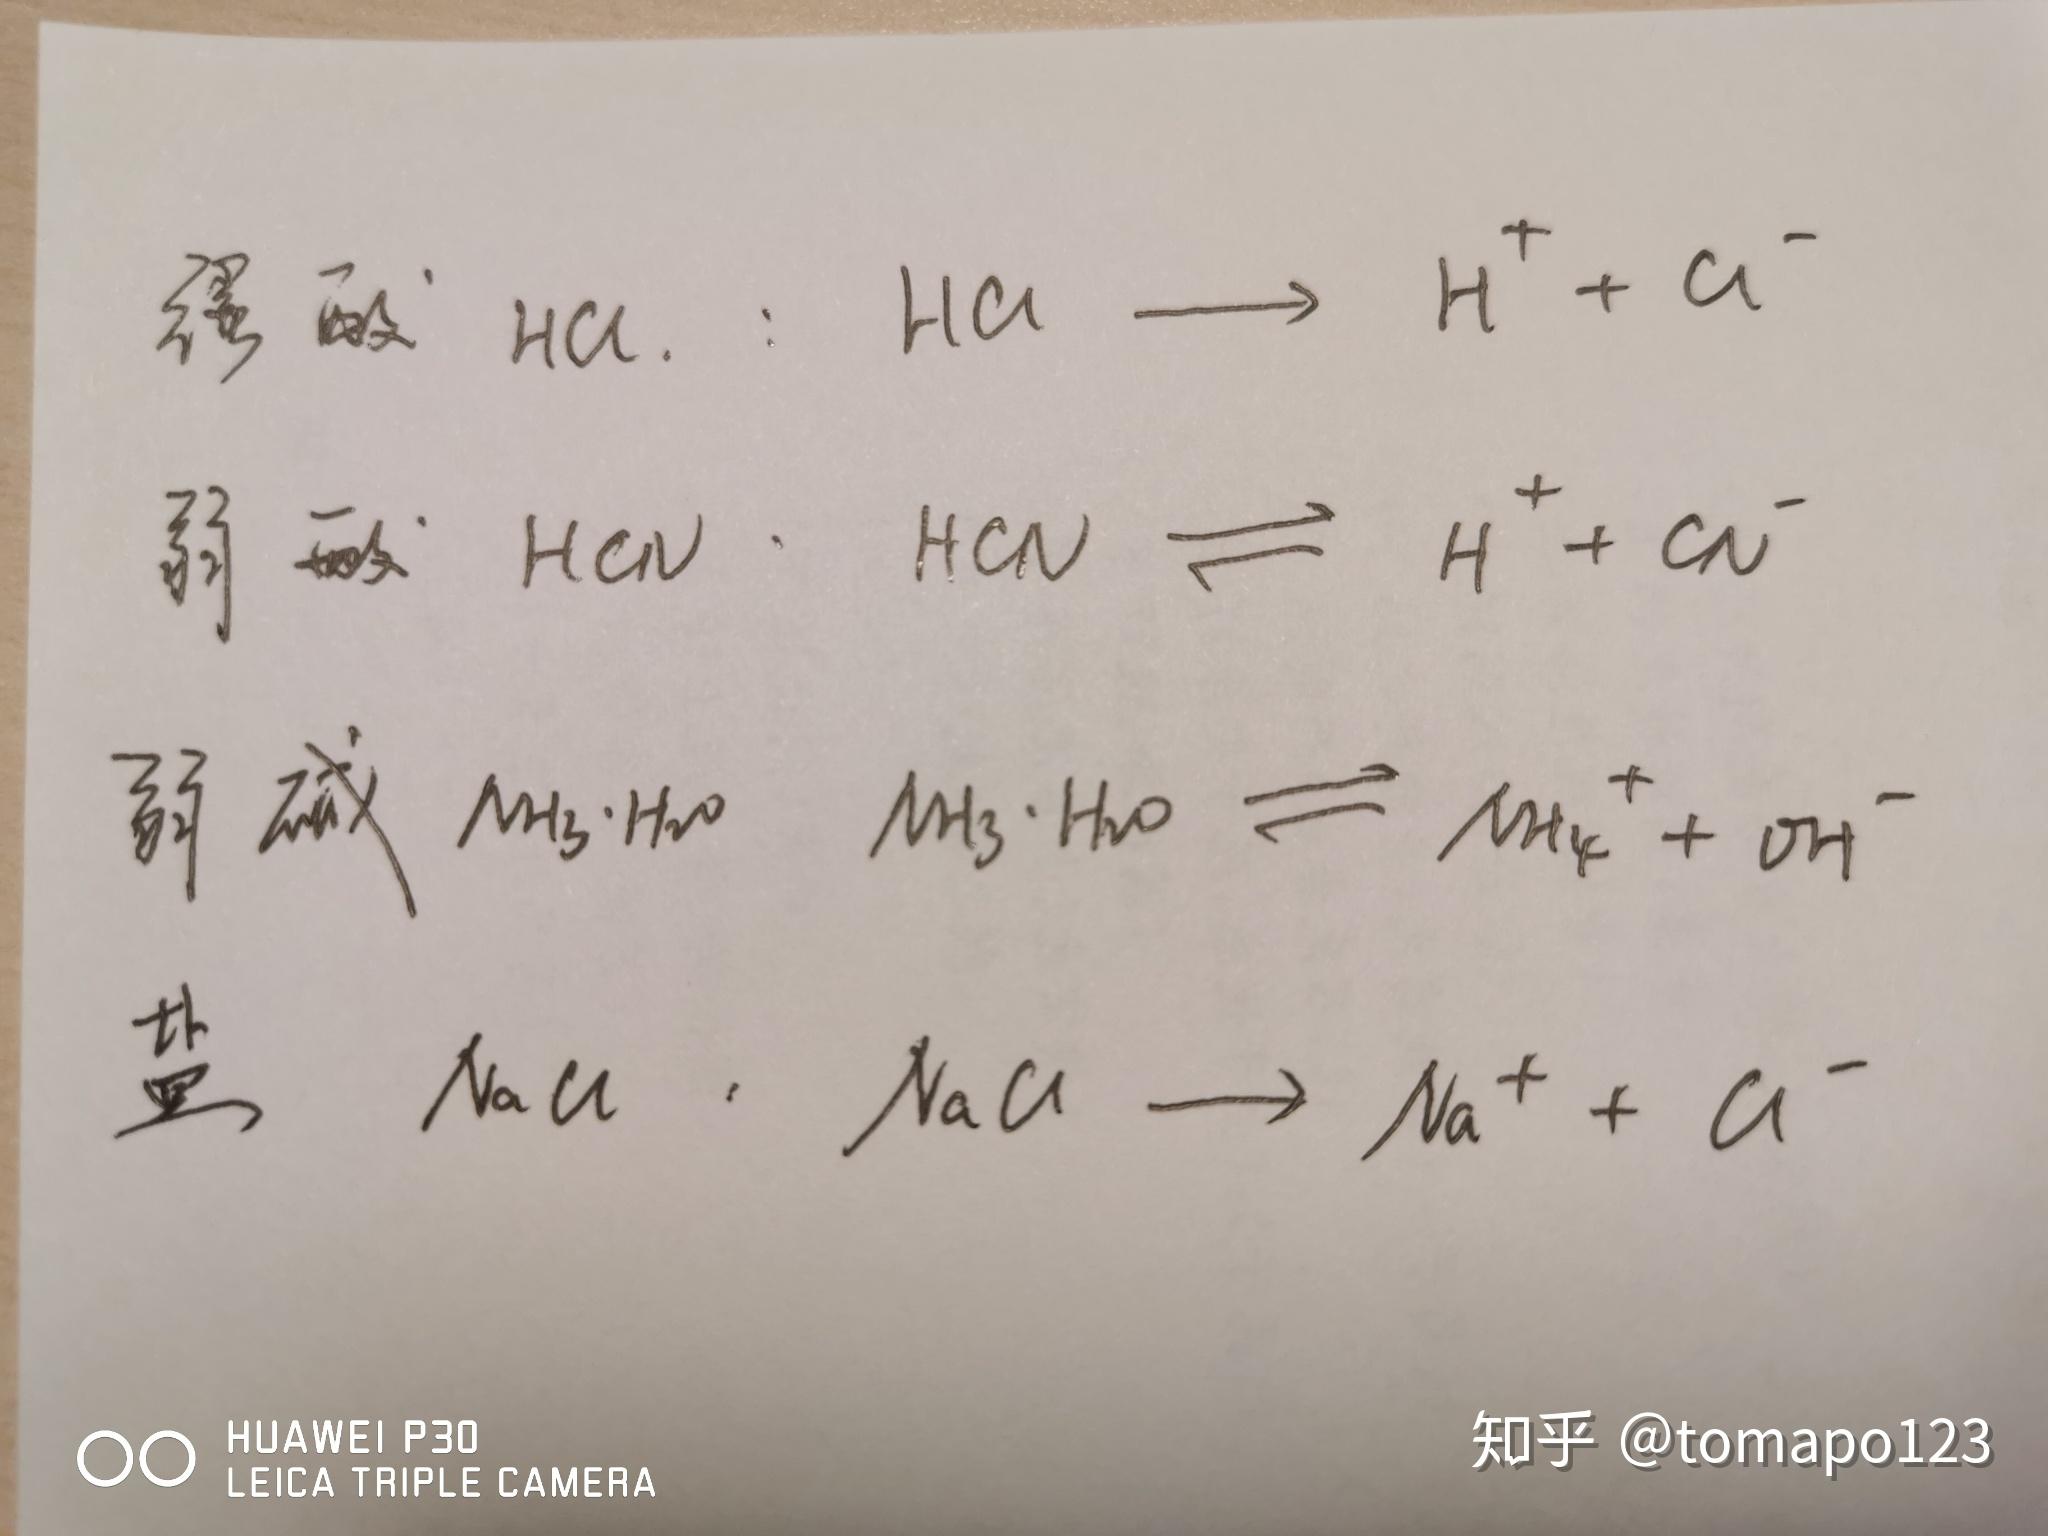 强酸 HCl. : HCl ⟶ H⁺ + Cl⁻
弱酸 HCN · HCN ⇌ H⁺ + CN⁻
弱碱 NH₃·H₂O NH₃·H₂O ⇌ NH₄⁺ + OH⁻
盐 NaCl · NaCl ⟶ Na⁺ + Cl⁻
HUAWEI P30
LEICA TRIPLE CAMERA
知乎 @tomapo123